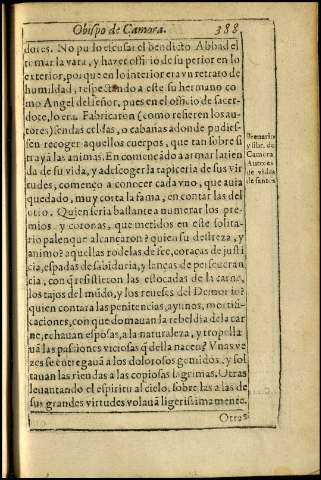 Obispo de Camora. 388
dores. No pudo escusar el bendicto Abbad el
tomar la vara, y hazer officio de superior en lo
exterior, porque en lo interior era vn retrato de
humildad, respectando a este su hermano co
mo Angel del señor, pues en el officio de sacer-
dote, lo era. Fabricaron (como refieren los au-
tores) sendas celdas, o cabañas adonde pudies-
sen recoger aquellos cuerpos, que tan sobre si
trayã las animas. En começãdo a armar la tien
da de su vida, y a descoger la tapiceria de sus vir
tudes, començo a conocer cada vno, que auia
quedado, muy corta la fama, en contar las del
otro. Quien seria bastante a numerar los pre-
mios y coronas, que metidos en este solita-
rio palenque alcançaron? quien su destreza, y
animo? aquellas rodelas de fee, coraças de justi
cia, espadas de sabiduria, y lanças de perseueran
cia, con q̃ resistieron las estocadas de la carne,
los tajos del mũdo, y los reueses del Demonio?
quien contara las penitencias, ayunos, mortifi-
caciones, con que domauan la rebeldia de la car
ne, echauan esposas, a la naturaleza, y tropella
uã las passiones viciosas q̃ della nacen? Vnas ve
zes se entregauã a los dolorosos gemidos, y sol
tauan las riendas a las copiosas lagrimas. Otras
leuantando el espiritu al cielo, sobre las alas de
sus grandes virtudes volauã ligerissimamente.
Otras
Breuario
y libr. de
Camora
Autores
de vidas
de santos